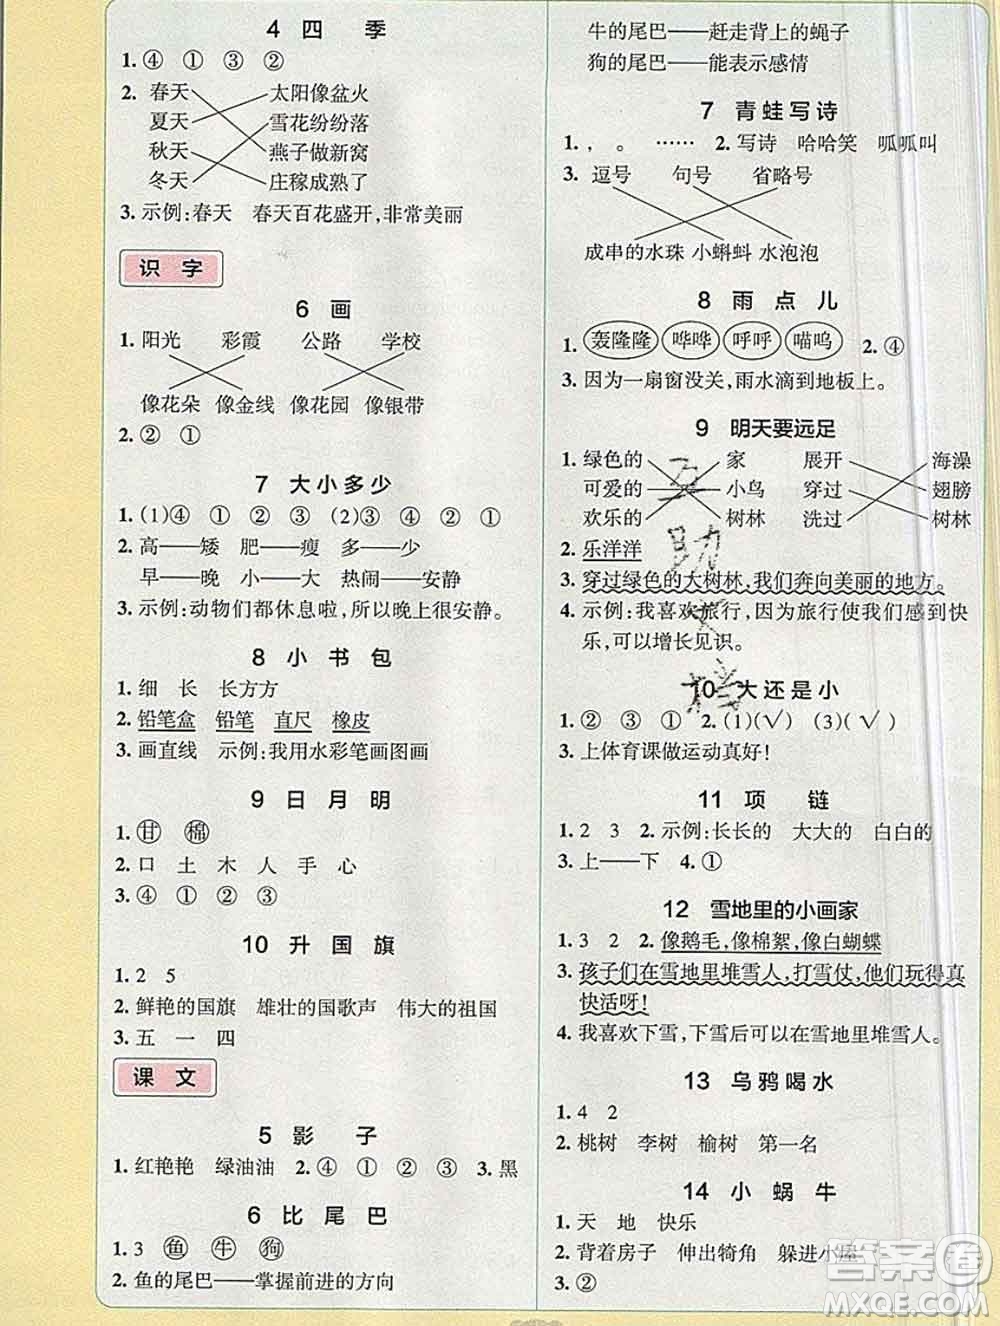 4 四 季
1. ④ ① ③ ②
2. 春天 太阳像盆火
夏天 雪花纷纷落
秋天 燕子做新窝
冬天 庄稼成熟了
3. 示例:春天 春天百花盛开,非常美丽
识 字
6 画
1. 阳光 彩霞 公路 学校
像花朵 像金线 像花园 像银带
2. ② ①
7 大小多少
1. (1)④ ① ② ③ (2)③ ④ ② ①
2. 高——矮 肥——瘦 多——少
早——晚 小——大 热闹——安静
3. 示例:动物们都休息啦,所以晚上很安静。
8 小书包
1. 细 长 长方方
2. 铅笔盒 铅笔 直尺 橡皮
3. 画直线 示例:我用水彩笔画图画
9 日月明
1. 甘 棉
2. 口 土 木 人 手 心
3. ④ ① ② ③
10 升国旗
1. 2 5
2. 鲜艳的国旗 雄壮的国歌声 伟大的祖国
3. 五 一 四
课 文
5 影 子
1. 红艳艳 绿油油 2. ④ ① ② ③ 3. 黑
6 比尾巴
1. 3 鱼 牛 狗
2. 鱼的尾巴——掌握前进的方向
牛的尾巴——赶走背上的蝇子
狗的尾巴——能表示感情
7 青蛙写诗
1. , 。 …… 2. 写诗 哈哈笑 呱呱叫
3. 逗号 句号 省略号
成串的水珠 小蝌蚪 水泡泡
8 雨点儿
1. 轰隆隆 哗哗 呼呼 喵呜 2. ④
3. 因为一扇窗没关,雨水滴到地板上。
9 明天要远足
1. 绿色的 家 展开 海澡
可爱的 小鸟 穿过 翅膀
欢乐的 树林 洗过 树林
2. 乐洋洋
3. 穿过绿色的大树林,我们奔向美丽的地方。
4. 示例:我喜欢旅行,因为旅行使我们感到快
乐,可以增长见识。
10 大还是小
1. ② ③ ① 2. (1)(√) (3)(√)
3. 上体育课做运动真好!
11 项 链
1. 2 3 2. 示例:长长的 大大的 白白的
3. 上——下 4. ①
12 雪地里的小画家
1. 3 2 2. 像鹅毛,像棉絮,像白蝴蝶
3. 孩子们在雪地里堆雪人,打雪仗,他们玩得真
快活呀!
4. 我喜欢下雪,下雪后可以在雪地里堆雪人。
13 乌鸦喝水
1. 4 2
2. 桃树 李树 榆树 第一名
14 小蜗牛
1. 天 地 快乐
2. 背着房子 伸出犄角 躲进小屋
3. ②
答案圈
MXQE.COM